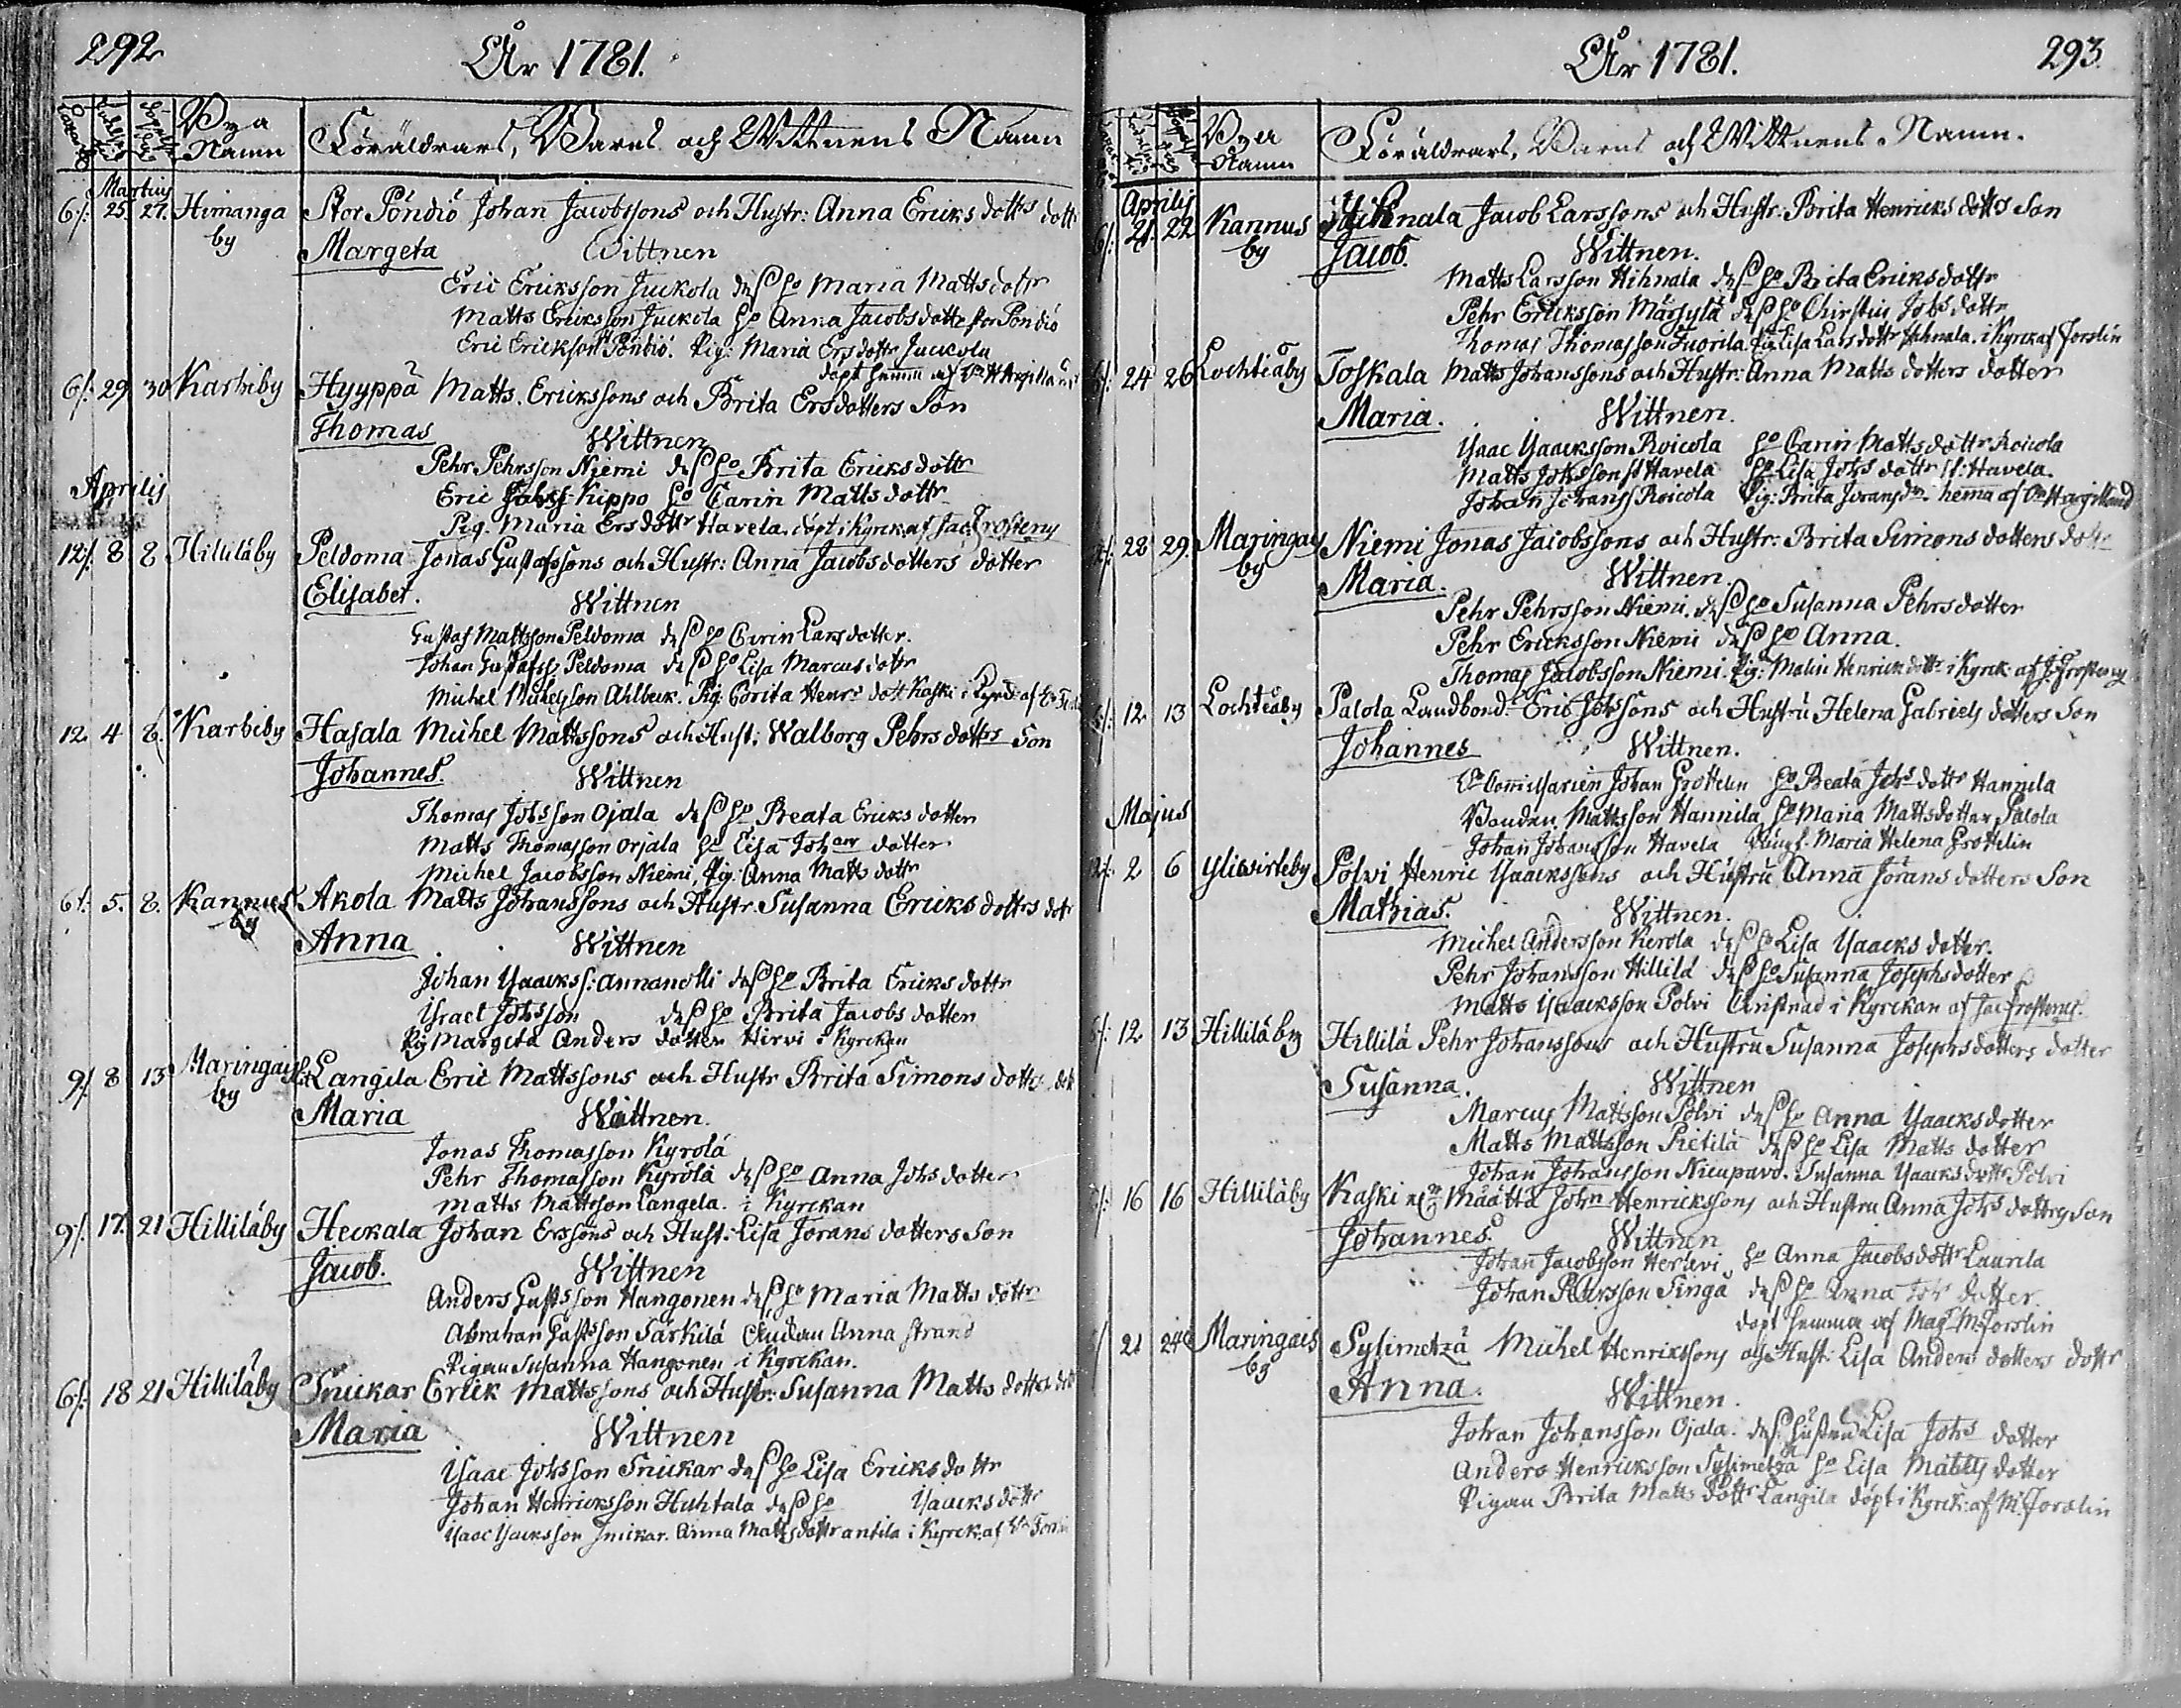 292
År 1781.
Bya Namn
Föräldrars, Barns och Wittnens Namn
Martius
6/: 25. 27. Himanga by
Stor Pöndiö Johan Jacobssons och Hustr: Anna Ericks dotts dott
Margeta Wittnen
Eric Ericksson Juckola des ho Maria Matts dottr
Matts Ericksson Juckola ho Anna Jacobsdottr stor Pöndiö
Eric Erickson Pöndiö. Pig: Maria Ersdottr Juckola
döpt hemma af
6/: 29. 30 Karhiby Hyyppä Matts. Erickssons och Brita Ersdotters Son
Thomas Wittnen
Pehr Pehrsson Niemi des ho Brita Ericksdottr
Eric Kippo ho Carin Matts dottr
Pig. Maria Ersdottr Havela. döpt i Kyrck. af Jac Frosterus
Aprilis
12/: 8 8 Hilliläby Peldoma Jonas Gustafssons och Hustr: Anna Jacobsdotters dotter
Elisabet. Wittnen
Gustaf Mattsson Peldoma des ho Carin Larsdotter.
Johan Gustafss Peldoma des ho Lisa Marcus dottr
Michel Michelsson Ahlbeck. Pig. Brita Henr: dott Kaski i Kyrck: af
12 4 8. Karhiby Hasala Michel Mattssons och Hust: Walborg Pehrs dottrs Son
Johannes. Wittnen
Thomas Johsson Ojala des ho Beata Ericks dotter
Matts Thomasson Orjala ho Lisa Johans dotter
Michel Jacobsson Niemi, Pig: Anna Matts dottr
6/: 5. 8. Kannus by Akola Matts Johanssons och Hustr. Susanna Ericks dottrs dotr
Anna Wittnen
Johan Ysaacks: Annanolli des ho Brita Ericks dottr
Ysrael Johsson des ho Brita Jacobs dotter
Pig Margeta Anders dotter Hirvi i Kyrckan
9/: 8 13 Maringais by Langila Eric Mattssons och Hustr Brita Simons dotts dott
Maria Wittnen.
Jonas Thomasson Kyrölä
Pehr Thomasson Kyrölä des ho Anna Johs dotter
Matts Mattsson Langela. i Kyrckan
9/: 17. 21 Hilliläby Heckala Johan Erssons och Hust: Lisa Jorans dotters Son
Jacob. Wittnen
Anders Gustsson Hangonen des ho Maria Matts dottr
Abraham Gustsson Särkilä Enckan Anna Strand
Pigan Susanna Hangonen i Kyrckan.
6/: 18 21 Hilliläby Snickar Erick Mattssons och Hustr: Susanna Matts dotters dott
Maria Wittnen
Ysaac Johsson Snickar des ho Lisa Ericksdottr
Johan Henricksson Huhtala des ho Ysaacks dottr
Ysaac Ysacksson Snickar. Anna Mattsdottr Antila i Kyrck: af
År 1781.
293.
Bya Namn
Föräldrars, Barns och Wittnens Namn.
Aprilis
6/: 21. 22 Kannus by
Hihnala Jacob Larssons och Hustr: Brita Henricks dottrs Son
Jacob. Wittnen.
Matts Larsson Hihnala des ho Brita Ericksdottr
Pehr Ericksson Märsylä des ho Christin Johs dottr
Thomas Thomasson Tuorila. Pig Lisa Lars dottr Hihnala. i Kyrck af Forslin
24 26 Lochteåby Toskala Matts Johanssons och Hustr: Anna Matts dotters dotter
Maria. Wittnen.
Ysaac Ysaacksson Roicola ho Carin Matts dottr Roicola
Matts Johsson Havela ho Lisa Johs dottr Havela.
Johan Johanss Roicola Pig: Brita Joransdr. hema af
28 29. Maringais by Niemi Jonas Jacobssons och Hustr: Brita Simons dotters dottr
Maria. Wittnen.
Pehr Pehrsson Niemi. des ho Susanna Pehrsdotter
Pehr Ericksson Niemi des ho Anna.
Thomas Jacobsson Niemi. Pig: Malin Henricks dottr i Kyrck: af J: Frosterus
12 13 Lochteåby Palola Landbond: Eric Johssons och Hustru Helena Gabriels dotters Son
Johannes Wittnen.
Johan Grottelin ho Beata Johs dottr Hannila
Bonden Mattsson Hannila, ho Maria Mattsdotter Palola
Johan Johansson Havela Jungf. Maria Helena Grottelin
Majus
2 6 Yliwirteby Polvi Henric Ysaackssons och Hustru Anna Jörans dotters Son
Mathias. Wittnen.
Michel Andersson Kerola des ho Lisa Ysaacks dotter.
Pehr Johansson Hillilä des ho Susanna Josephsdotter
Matts Ysaacksson Polvi Christnad i Kyrckan af Jac Frosterus.
12 13 Hilliläby Hillilä Pehr Johanssons och Hustru Susanna Josephsdotters dotter
Susanna. Wittnen
Marcus Mattsson Polvi des ho Anna Ysaacksdotter
Matts Mattsson Pietilä des ho Lisa Matts dotter
Johan Johansson Nicupavo. Susanna Ysaacks dottr Polvi
16 16 Hilliläby Kaski Määttä Johan Henrickssons och Hustru Anna Johs dotters Son
Johannes. Wittnen
Johan Jacobsson Herlevi, ho Anna Jacobsdottr Laurila
Johan Pehrsson Tinga des ho Anna Joh dotter
döpt hemma af Mag M: Forslin
21 24 Maringais by Sylimetzä Michel Henrikssons och Hust: Lisa Anders dotters dottr
Anna. Wittnen.
Johan Johansson Ojala. des hustru Lisa Johs dotter
Anders Henricksson Sylimetzä ho Lisa Matts dotter
Pigan Brita Matts dottr Langila döpt i Kyrck: af M. Forslin